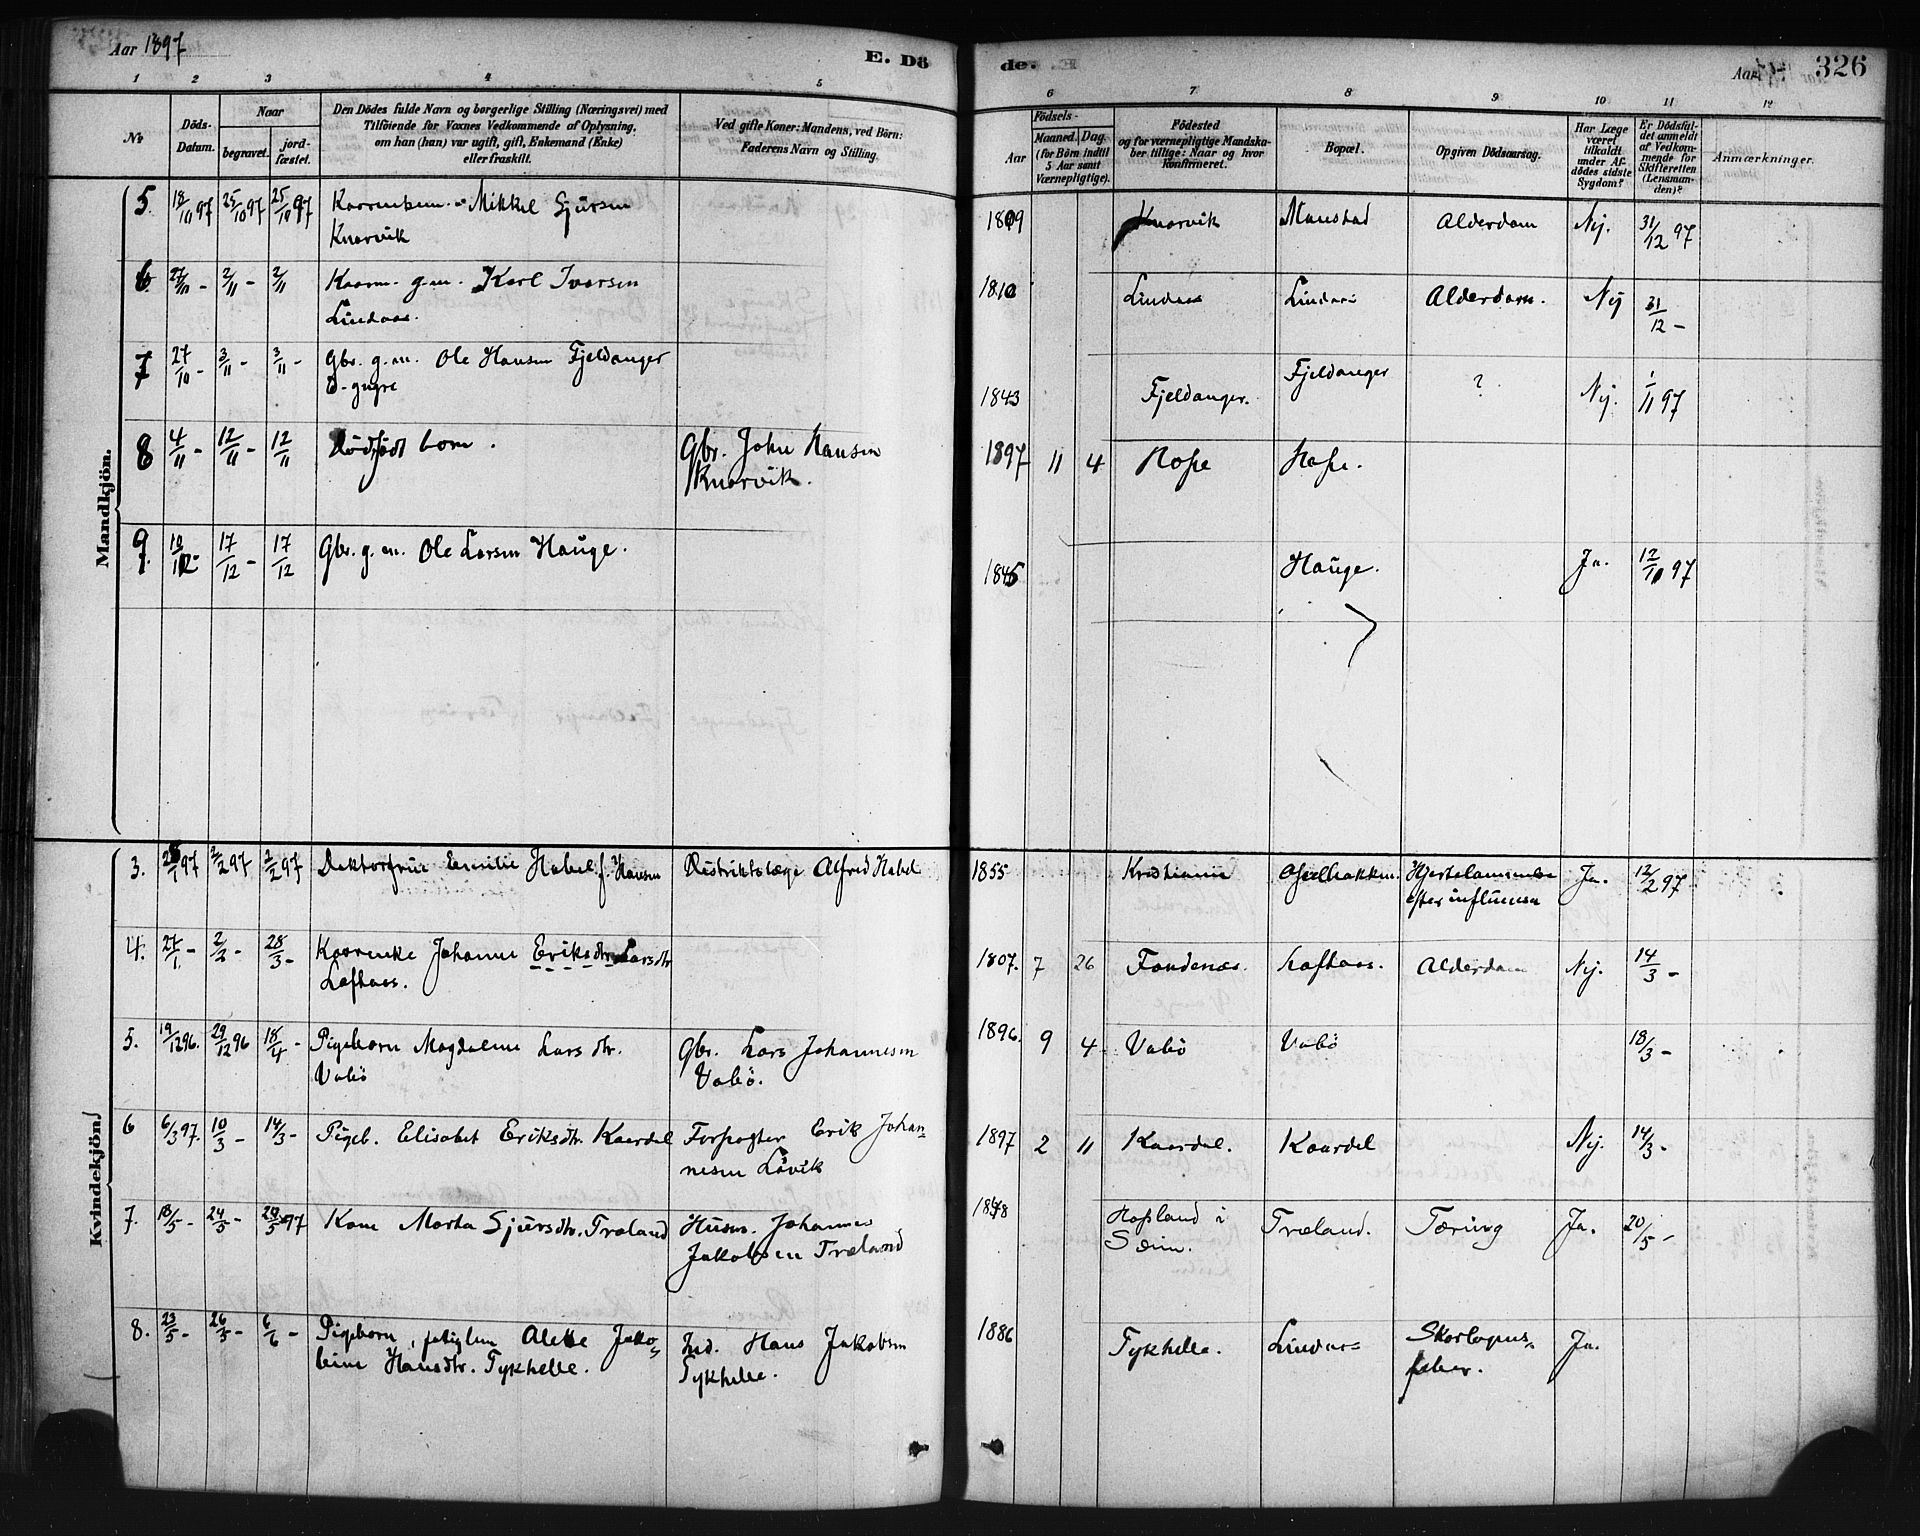 Aar 1897
E. Dö
de.
Aar 97
326
1 2 3 4 5 6 7 8 9 10 11 12
No
Döds-
Datum.
Naar
begravet.
jord-
fæstet.
Den Dödes fulde Navn og borgerlige Stilling (Næringsvei) med
Tilföiende for Voxnes Vedkommende af Oplysning,
om han (hun) var ugift, gift, Enkemand (Enke)
eller fraskilt.
Ved gifte Koner: Mandens, ved Börn:
Faderens Navn og Stilling.
Födsels-
Aar
Maaned. Dag.
(for Börn indtil
5 Aar samt
Værnepligtige).
Födested
og for værnepligtige Mandska-
ber tillige: Naar og hvor
konfirmeret.
Bopæl.
Opgiven Dödsaarsag.
Har Læge
været
tilkaldt
under Af-
dödes sidste
Sygdom?
Er Dödsfal-
det anmeldt
af Vedkom-
mende for
Skifteretten
(Lensman-
den)?
Anmærkninger.
Mandkjön.
5. 18/10 97 25/10 97 25/10 97 Kaarenkem. Mikkel Sjursen
Knarvik
1809 Knarvik Monstad Alderdom Nej. 31/12 97
6. 27/10 - 2/11 - 2/11 Kaarm. g.m. Karl Iversen
Lindaas.
1810 Lindaas Lindaas Alderdom. Nej 31/12 -
7 27/10 - 3/11 - 3/11 Gbr. g.m. Ole Hansen Fjeldanger
1843 Fjeldanger. Fjeldanger ? Nej. 1/11 97
8 4/11 - 12/11 - 12/11 Dödfödt barn. Gbr. John Hansen
Knarvik.
1897 11 4 Hope Hope.
9. 10/12 - 17/12 - 17/12 Gbr. g.m. Ole Larsen Hauge.
1845 Hauge. Ja. 12/10 97
Kvindekjön.
3. 28/1 97 2/2 97 2/2 97 Doktorfrue Emilie Habel f. Hansen Distriktslæge Alfred Habel
1855 Kristiania Hjertelammelse
efter influensa Ja. 12/2 97
4. 27/1 - 2/2 - 28/3 - Kaarenke Johanne Eriksdtr Larsdtr
Loftaas.
1807. 7 26 Fondenæs. Loftaas. Alderdom Nej. 14/3 -
5. 19/12 96. 29/12 96 18/4 - Pigebarn Magdalene Larsdtr.
Vabö
Gbr. Lars Johannesen
Vabö.
1896. 9 4 Vabö Vabö 18/3 -
6 6/3 97. 10/3 - 14/3 - Pigeb. Elisabet Eriksdtr. Kaardal Forpagter Erik Johan-
nesen Lövik
1897 2 11 Kaardal. Kaardal Nej. 14/3 -
7. 18/5 - 24/5 - 29/5 97 Kone Marta Sjursdtr. Træland Husm. Johannes
Jakobsen Træland
1848 Hopland i
Sæim. Træland. Tæring Ja. 20/5 -
8. 23/5 - 26/5 - 6/6 - Pigebarn, fattiglem Alette Jako-
bine Hansdtr. Tykhelle.
Ind. Hans Jakobsen
Tykhelle.
1886 Tykhelle. Lindaas Skarlagens-
feber. Ja.